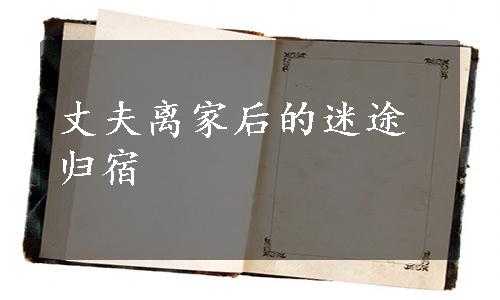 丈夫离家后的迷途
归宿